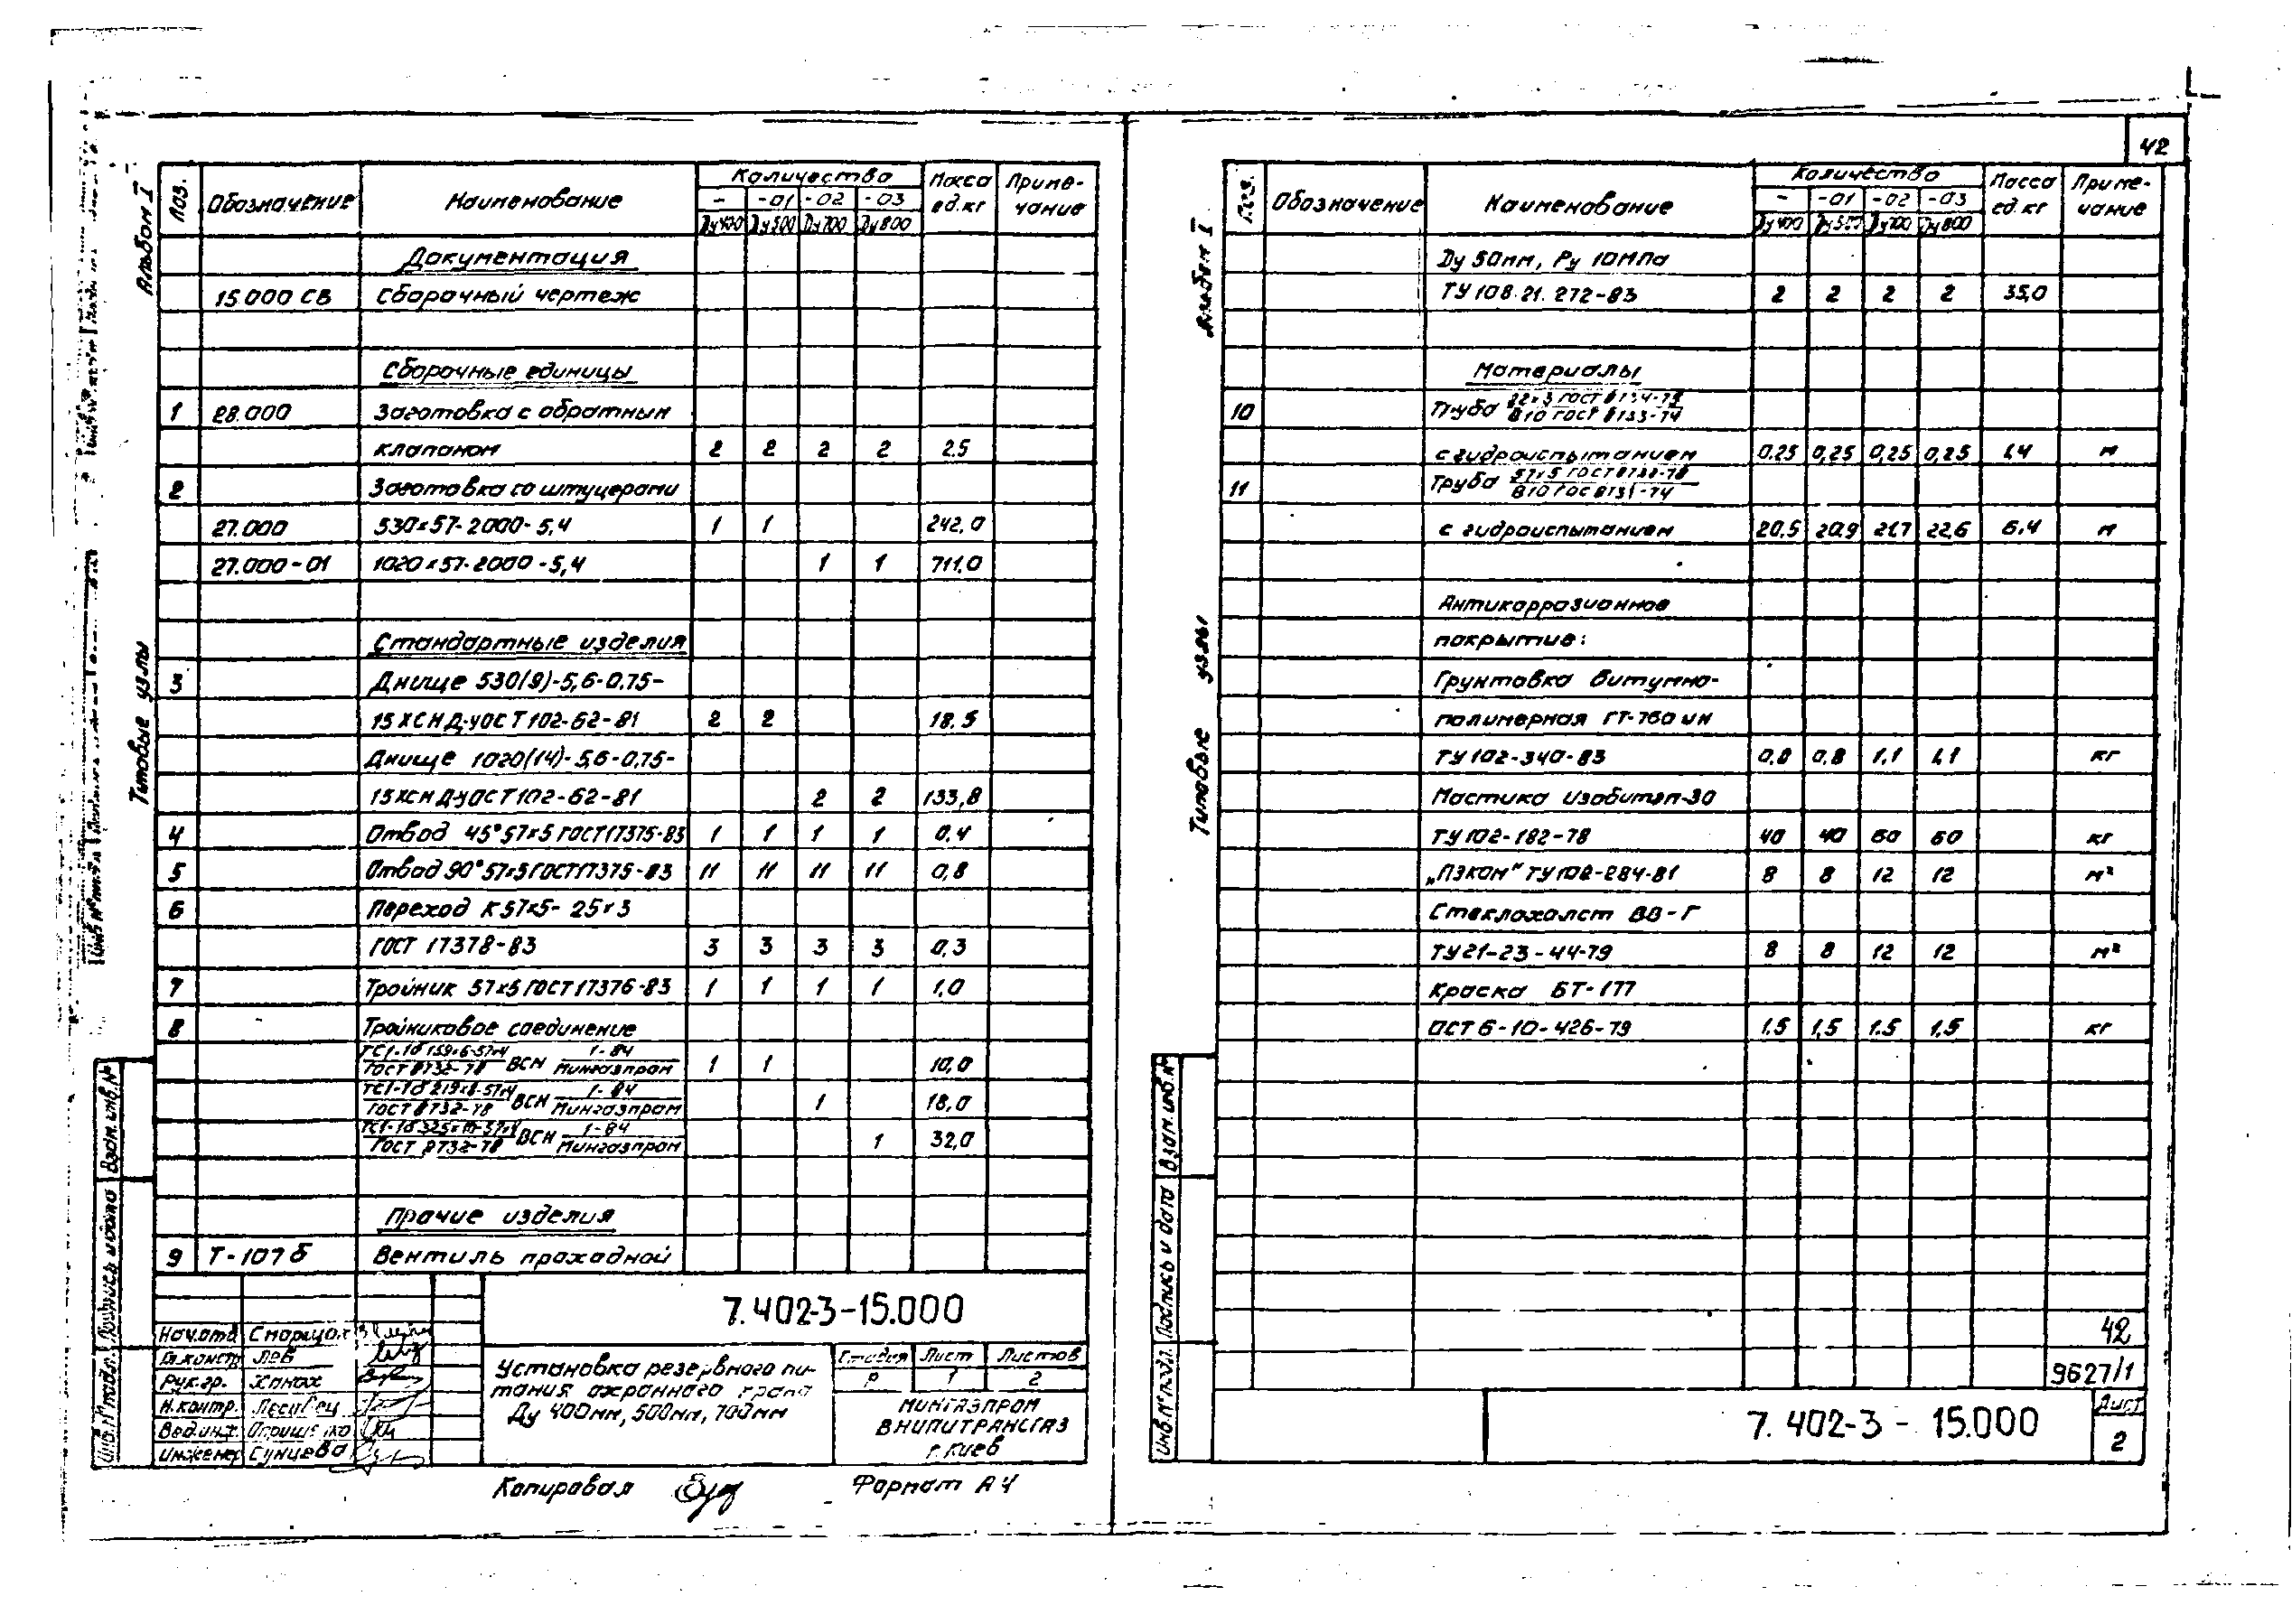 42
Альбом I
Типовые узлы
Поз. Обозначение Наименование Количество Масса ед.кг Приме-чание
- -01 -02 -03
Ду400 Ду500 Ду700 Ду800
Документация
15.000 СБ Сборочный чертеж
Сборочные единицы
1 28.000 Заготовка с обратным
клапаном 2 2 2 2 2.5
2 Заготовка со штуцерами
27.000 530×57-2000-5,4 1 1 242,0
27.000-01 1020×57-2000-5,4 1 1 711,0
Стандартные изделия
3 Днище 530(9)-5,6-0,75-
15ХСНД-У ОСТ102-62-81 2 2 18.5
Днище 1020(14)-5,6-0,75-
15ХСНД-У ОСТ102-62-81 2 2 133,8
4 Отвод 45°57×5 ГОСТ17375-83 1 1 1 1 0,4
5 Отвод 90°57×5 ГОСТ17375-83 11 11 11 11 0,8
6 Переход К57×5-25×3
ГОСТ 17378-83 3 3 3 3 0,3
7 Тройник 57×5 ГОСТ17376-83 1 1 1 1 1,0
8 Тройниковое соединение
ТС1-1б 159×6-57×4 / ГОСТ 8732-78 ВСН 1-84 / Мингазпром 1 1 10,0
ТС1-1б 219×8-57×4 / ГОСТ 8732-78 ВСН 1-84 / Мингазпром 1 18,0
ТС1-1б 325×10-57×4 / ГОСТ 8732-78 ВСН 1-84 / Мингазпром 1 32,0
Прочие изделия
9 Т-107б Вентиль проходной
7.402-3-15.000
Нач.отд
Гл.констр Лев
Рук.гр. Ханах
Н.контр.
Вед.инж.
Инженер Сунцева
Установка резервного пи-
тания охранного крана
Ду 400мм, 500мм, 700мм
Стадия Лист Листов
Р 1 2
МИНГАЗПРОМ
ВНИПИТРАНСГАЗ
г. Киев
Копировал
Формат А4
Инв.№ подл. Подпись и дата Взам.инв.№
Альбом I
Типовые узлы
Поз. Обозначение Наименование Количество Масса ед.кг Приме-чание
- -01 -02 -03
Ду400 Ду500 Ду700 Ду800
Ду 50мм, Ру 10МПа
ТУ 108.21.272-83 2 2 2 2 35,0
Материалы
10 Труба 22×3 ГОСТ 8734-75 / В10 ГОСТ 8733-74
с гидроиспытанием 0,25 0,25 0,25 0,25 1,4 м
11 Труба 57×5 ГОСТ 8732-78 / В10 ГОСТ 8731-74
с гидроиспытанием 20,5 20,9 21,7 22,6 6,4 м
Антикоррозионное
покрытие:
Грунтовка битумно-
полимерная ГТ-760 ИН
ТУ102-340-83 0,8 0,8 1,1 1,1 кг
Мастика Изобитэп-30
ТУ102-182-78 40 40 60 60 кг
„ПЭКОМ" ТУ102-284-81 8 8 12 12 м²
Стеклохолст ВВ-Г
ТУ21-23-44-79 8 8 12 12 м²
Краска БТ-177
ОСТ 6-10-426-79 1,5 1,5 1,5 1,5 кг
42
9627/1
7.402-3-15.000
Лист
2
Инв.№ подл. Подпись и дата Взам.инв.№